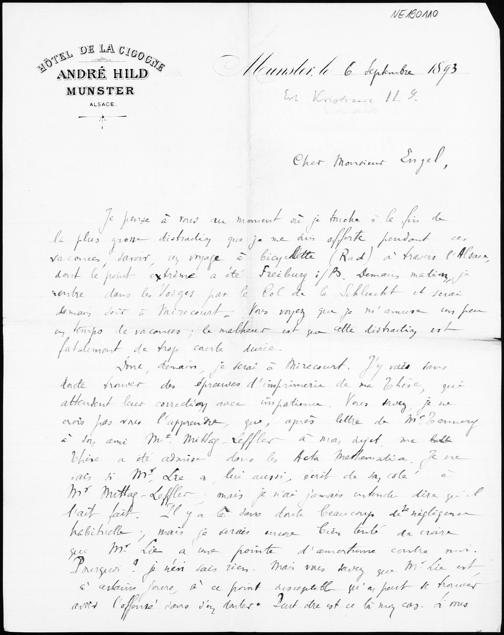 NE150110
HÔTEL DE LA CIGOGNE
ANDRÉ HILD
MUNSTER
ALSACE.
Munster, le 6 Septembre 1893
Cher Monsieur Engel,
Je pense à vous au moment où je touche à la fin de
la plus grosse distraction que je me suis offerte pendant ces
vacances, savoir, un voyage à bicyclette (Rad) à travers l'Alsace,
dont le point extrême a été Freiburg i/B. Demain matin, je
rentre dans les Vosges par le Col de la Schlucht et serai
demain soir à Mirecourt. Vous voyez que je m'amuse un peu
en temps de vacances; le malheur est que cette distraction est
fatalement de trop courte durée.
Donc, demain, je serai à Mirecourt. J'y vais sans
doute trouver des épreuves d'imprimerie de ma Thèse, qui
attendent leur correction avec impatience. Vous savez, je ne
crois pas vous l'apprendre, que, après lettre de Mr Tannery
à son ami Mr Mittag-Leffler à mon sujet ma
Thèse a été admise dans les Acta Mathematica. Je ne
sais si Mr. Lie a, lui aussi, écrit de son côté à
Mr Mittag-Leffler, mais je n'ai jamais entendu dire qu'il
l'ait fait. Il y a là sans doute beaucoup de sa négligence
habituelle; mais je serais encore bien tenté de croire
que Mr Lie a une pointe d'amertume contre moi.
Pourquoi? je n'en sais rien. Mais vous savez que Mr Lie est
à certains jours, à ce point susceptible qu'on peut se trouver
avoir l'offensé sans s'en douter. Peut-être est ce là mon cas. À vous